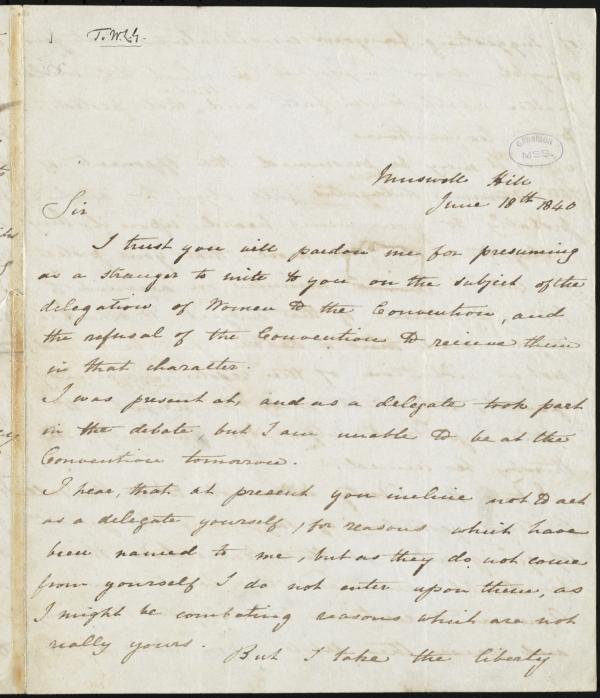 T.W.H.
GARRISON
MSS.
Muswell Hill
June 18th 1840
Sir
I trust you will pardon me for presuming
as a stranger to write to you on the subject of the
delegation of Women to the Convention, and
the refusal of the Convention to receive them
in that character.
I was present at, and as a delegate took part
in the debate but I am unable to be at the
Convention tomorrow.
I hear, that at present you incline not to act
as a delegate yourself, for reasons which have
been named to me, but as they do not come
from yourself I do not enter upon them, as
I might be combating reasons which are not
really yours.
But I take the liberty